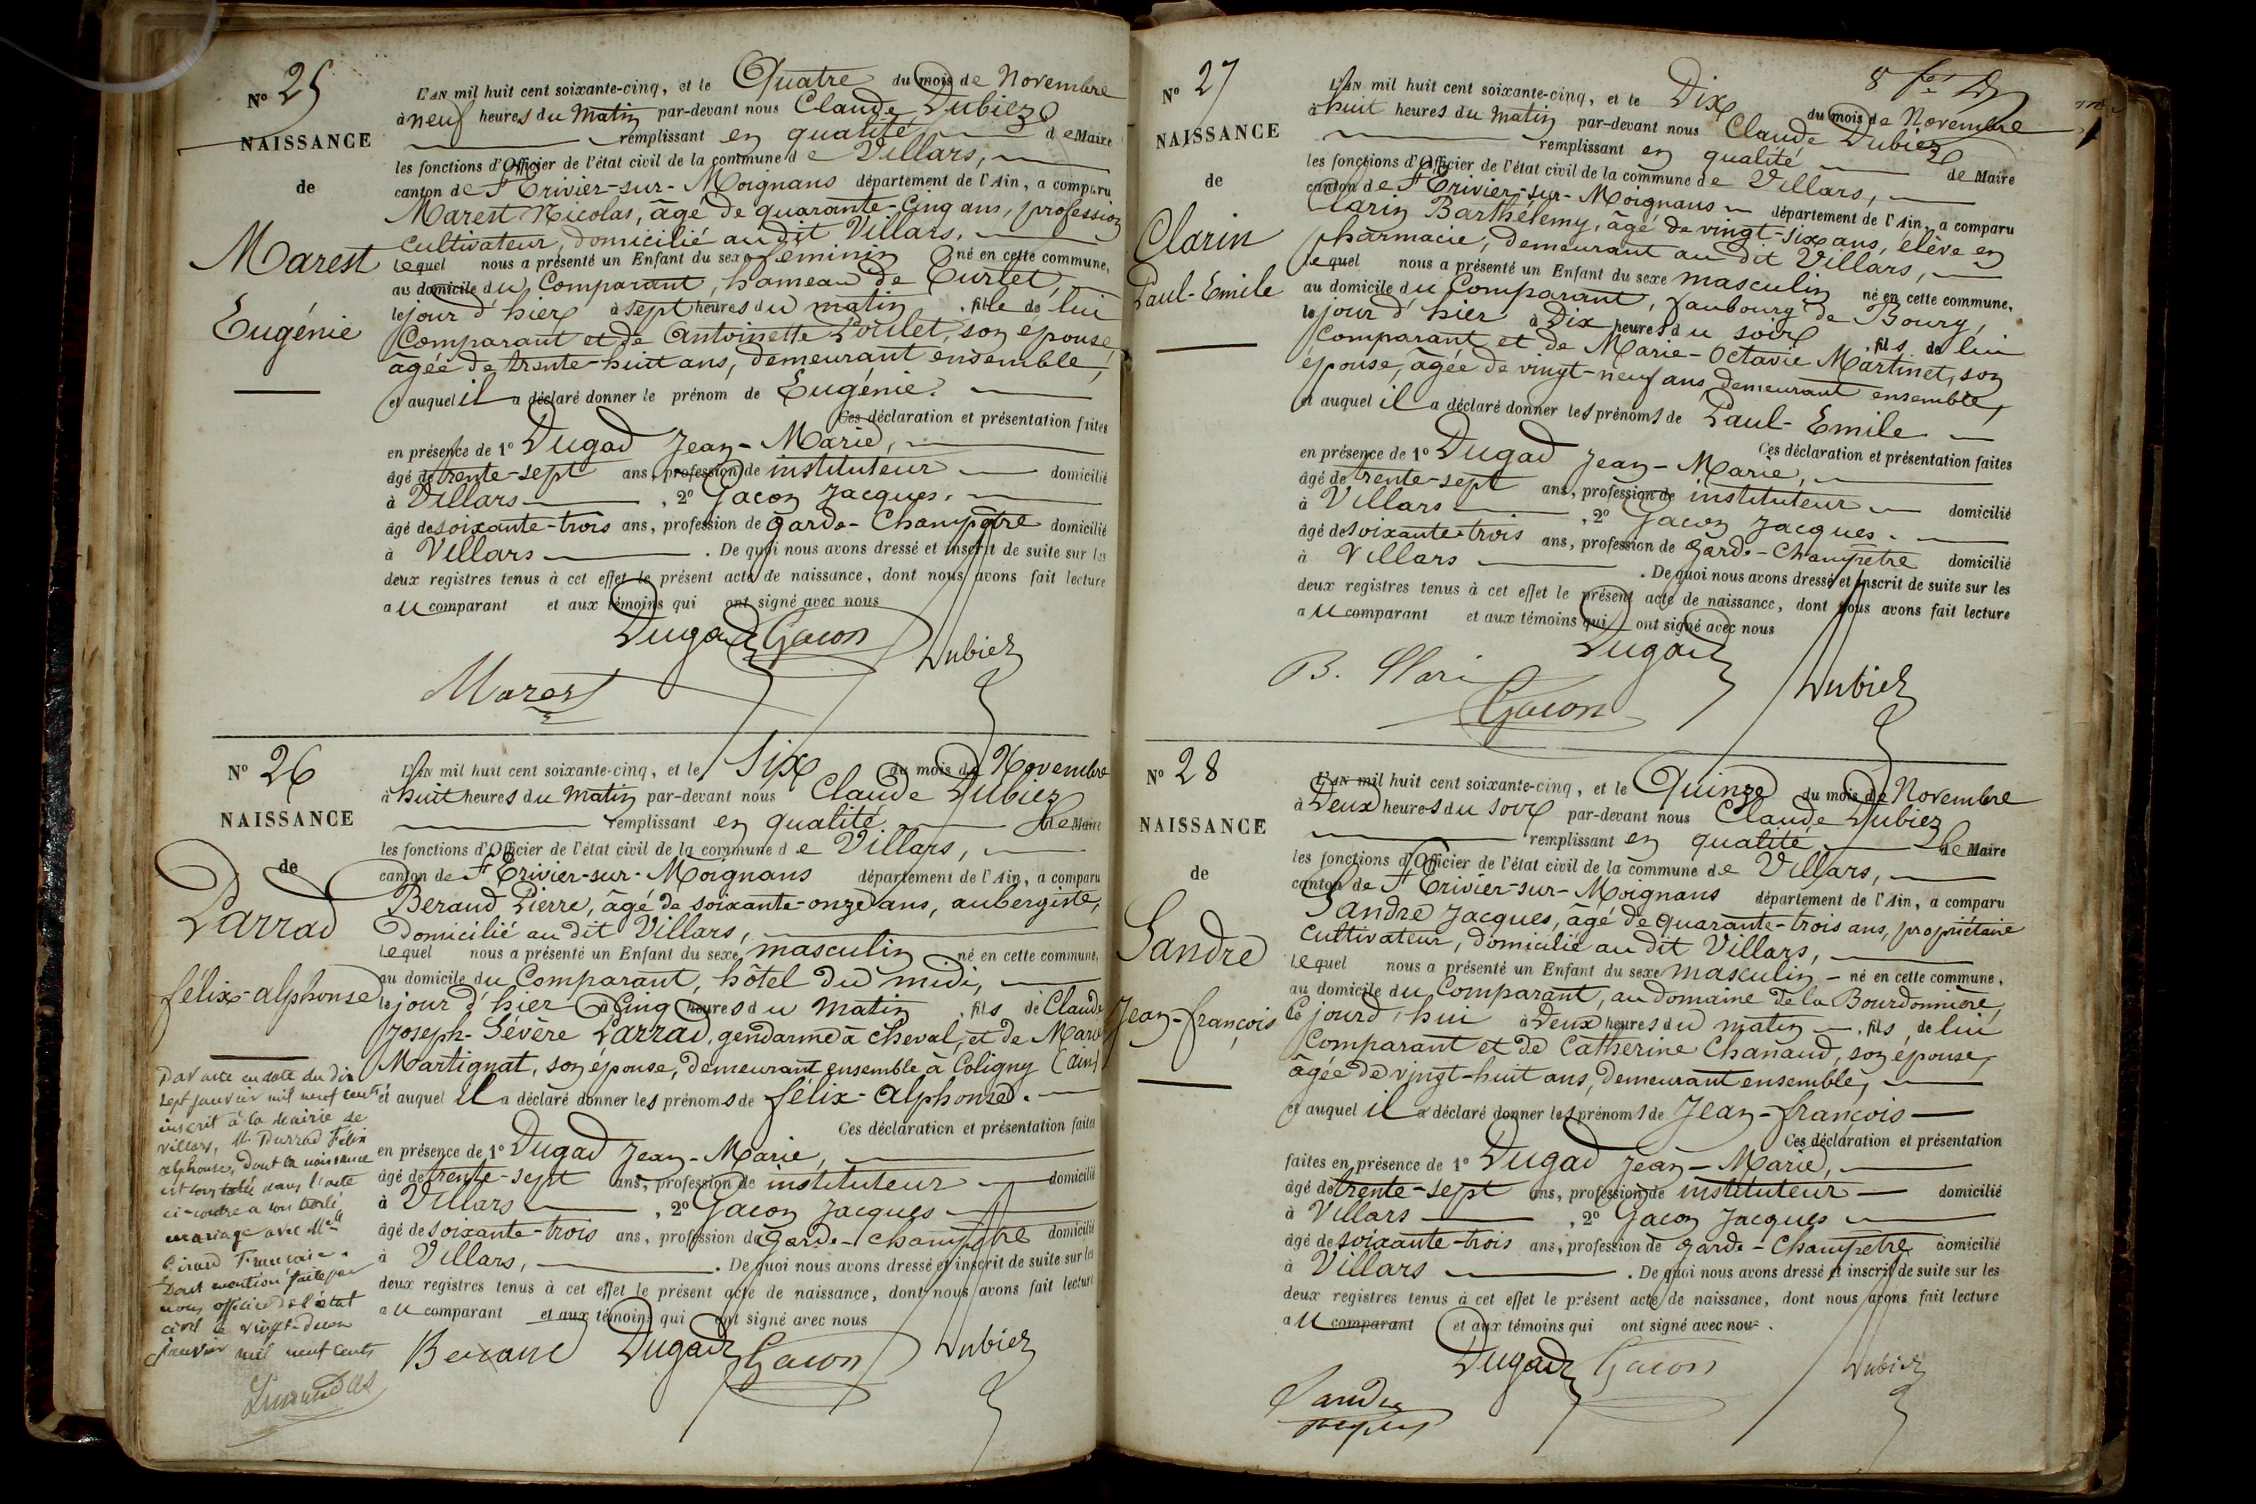 Nº 25
NAISSANCE
de
Marest
Eugénie
L'AN mil huit cent soixante-cinq, et le Quatre du mois de Novembre
à neuf heures du matin par-devant nous Claude Dubiez
remplissant en qualité de Maire
les fonctions d'Officier de l'état civil de la commune de Villars,
canton de St Trivier-sur-Moignans département de l'Ain, a comparu
Marest Nicolas, âgé de quarante-cinq ans, profession
cultivateur, domicilié au dit Villars,
lequel nous a présenté un Enfant du sexe féminin né en cette commune,
au domicile du Comparant, hameau de Curtet,
le jour d'hier à sept heures du matin, fille de lui
Comparant et de Antoinette Poulet, son épouse,
âgée de trente-huit ans, demeurant ensemble,
et auquel il a déclaré donner le prénom de Eugénie.
Ces déclaration et présentation faites
en présence de 1º Dugad Jean-Marie,
âgé de trente-sept ans, profession de instituteur domicilié
à Villars, 2º Gacon Jacques,
âgé de soixante-trois ans, profession de garde-champêtre domicilié
à Villars. De quoi nous avons dressé et inscrit de suite sur les
deux registres tenus à cet effet le présent acte de naissance, dont nous avons fait lecture
au comparant et aux témoins qui ont signé avec nous
Dugad Gacon Dubiez
Marest
Nº 26
NAISSANCE
de
Parrad
félix-alphonse
L'AN mil huit cent soixante-cinq, et le Six du mois de Novembre
à huit heures du matin par-devant nous Claude Dubiez
remplissant en qualité de Maire
les fonctions d'Officier de l'état civil de la commune de Villars,
canton de St Trivier-sur-Moignans département de l'Ain, a comparu
Beraud Pierre, âgé de soixante-onze ans, aubergiste,
domicilié au dit Villars,
lequel nous a présenté un Enfant du sexe masculin né en cette commune,
au domicile du Comparant, hôtel du midi,
le jour d'hier à Cinq heures du matin, fils de Claude
Joseph-Sévère Parrad, gendarme à cheval, et de Marie
Martignat, son épouse, demeurant ensemble à Coligny (Ain)
et auquel il a déclaré donner les prénoms de félix-alphonse.
Ces déclaration et présentation faites
en présence de 1º Dugad Jean-Marie,
âgé de trente-sept ans, profession de instituteur domicilié
à Villars, 2º Gacon Jacques
âgé de soixante-trois ans, profession de garde-champêtre domicilié
à Villars,. De quoi nous avons dressé et inscrit de suite sur les
deux registres tenus à cet effet le présent acte de naissance, dont nous avons fait lecture
au comparant et aux témoins qui ont signé avec nous
Beraud Dugad Gacon Dubiez
Par acte en date du dix
sept janvier mil neuf cent
inscrit à la mairie de
Villars, M. Parrad Félix
alphonse, dont la naissance
est constatée dans l'acte
ci-contre a contracté
mariage avec Melle
Girard Françoise.
Dont mention faite par
nous officier de l'état
civil le vingt-deux
janvier mil neuf cents
Nº 27
NAISSANCE
de
Clarin
Paul-Emile
L'AN mil huit cent soixante-cinq, et le Dix du mois de Novembre
à huit heures du matin par-devant nous Claude Dubiez
remplissant en qualité de Maire
les fonctions d'Officier de l'état civil de la commune de Villars,
canton de St Trivier-sur-Moignans département de l'Ain, a comparu
Clarin Barthélemy, âgé de vingt-six ans, élève en
pharmacie, demeurant au dit Villars,
lequel nous a présenté un Enfant du sexe masculin né en cette commune,
au domicile du Comparant, faubourg de Bourg,
le jour d'hier à Dix heures du soir, fils de lui
Comparant et de Marie-Octavie Martinet, son
épouse, âgée de vingt-neuf ans demeurant ensemble,
et auquel il a déclaré donner les prénoms de Paul-Emile
Ces déclaration et présentation faites
en présence de 1º Dugad Jean-Marie,
âgé de trente-sept ans, profession de instituteur domicilié
à Villars, 2º Gacon Jacques.
âgé de soixante-trois ans, profession de garde-champêtre domicilié
à Villars. De quoi nous avons dressé et inscrit de suite sur les
deux registres tenus à cet effet le présent acte de naissance, dont nous avons fait lecture
au comparant et aux témoins qui ont signé avec nous
Dugad
B. Clarin Dubiez
Gacon
Nº 28
NAISSANCE
de
Sandre
Jean-françois
L'AN mil huit cent soixante-cinq, et le Quinze du mois de Novembre
à Deux heures du soir par-devant nous Claude Dubiez
remplissant en qualité de Maire
les fonctions d'Officier de l'état civil de la commune de Villars,
canton de St Trivier-sur-Moignans département de l'Ain, a comparu
Sandre Jacques, âgé de quarante-trois ans, propriétaire
cultivateur, domicilié au dit Villars,
lequel nous a présenté un Enfant du sexe masculin né en cette commune,
au domicile du Comparant, au domaine de la Bourdonnière,
le jourd'hui à Deux heures du matin, fils de lui
Comparant et de Catherine Chanaud, son épouse,
âgée de vingt-huit ans, demeurant ensemble,
et auquel il a déclaré donner les prénoms de Jean-françois
Ces déclaration et présentation
faites en présence de 1º Dugad Jean-Marie,
âgé de trente-sept ans, profession de instituteur domicilié
à Villars, 2º Gacon Jacques
âgé de soixante-trois ans, profession de garde-champêtre domicilié
à Villars. De quoi nous avons dressé et inscrit de suite sur les
deux registres tenus à cet effet le présent acte de naissance, dont nous avons fait lecture
au comparant et aux témoins qui ont signé avec nous.
Dugad Gacon Dubiez
Sandre
Jacques